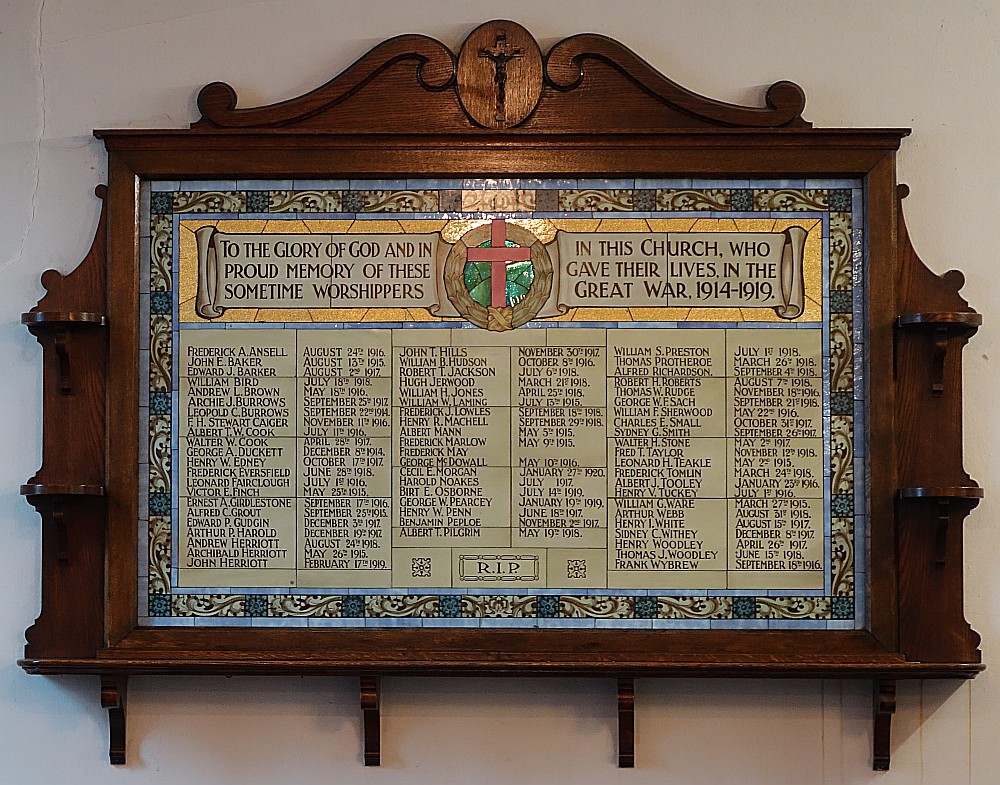 TO THE GLORY OF GOD AND IN
PROUD MEMORY OF THESE
SOMETIME WORSHIPPERS
IN THIS CHURCH, WHO
GAVE THEIR LIVES, IN THE
GREAT WAR, 1914-1919.
FREDERICK A. ANSELL AUGUST 24TH 1916.
JOHN E. BAKER AUGUST 13TH 1915.
EDWARD J. BARKER AUGUST 2ND 1917.
WILLIAM BIRD JULY 18TH 1918.
ANDREW L. BROWN MAY 18TH 1916.
ARCHIE J. BURROWS SEPTEMBER 25TH 1917
LEOPOLD C. BURROWS SEPTEMBER 22ND 1914.
F. H. STEWART CAIGER NOVEMBER 11TH 1916.
ALBERT T. W. COOK JULY 11TH 1916.
WALTER W. COOK APRIL 28TH 1917.
GEORGE A. DUCKETT DECEMBER 8TH 1914.
HENRY W. EDNEY OCTOBER 17TH 1917
FREDERICK EYRSFIELD JUNE 28TH 1918.
LEONARD FAIRCLOUGH JULY 1ST 1916.
VICTOR E. FINCH MAY 25TH 1915.
ERNEST A. GIRDLESTONE SEPTEMBER 17TH 1916.
ALFRED C. GROUT SEPTEMBER 25TH 1915.
EDWARD P. GUDGIN DECEMBER 3RD 1917.
ARTHUR P. HAROLD DECEMBER 19TH 1917
ANDREW HERRIOTT AUGUST 24TH 1918.
ARCHIBALD HERRIOTT MAY 26TH 1915.
JOHN HERRIOTT FEBRUARY 17TH 1919.
JOHN T. HILLS NOVEMBER 30TH 1917.
WILLIAM B. HUDSON OCTOBER 8TH 1916.
ROBERT T. JACKSON JULY 6TH 1918.
HUGH JERWOOD MARCH 21ST 1918.
WILLIAM H. JONES APRIL 25TH 1918.
WILLIAM W. LAMING JULY 13TH 1915.
FREDERICK J. LOWLES SEPTEMBER 18TH 1918.
HENRY R. MACHELL SEPTEMBER 29TH 1918.
ALBERT MANN MAY 5TH 1915.
FREDERICK MARLOW MAY 9TH 1915.
FREDERICK MAY
GEORGE McDOWALL MAY 10TH 1916.
CECIL E. MORGAN JANUARY 27TH 1920.
HAROLD NOAKES JULY 1917.
BIRT E. OSBORNE JULY 14TH 1919.
GEORGE W. PEARCEY JANUARY 19TH 1919.
HENRY W. PENN JUNE 18TH 1917.
BENJAMIN PEPLOE NOVEMBER 2ND 1917.
ALBERT T. PILGRIM MAY 19TH 1918.
R.I.P.
WILLIAM S. PRESTON JULY 1ST 1918.
THOMAS PROTHEROE MARCH 26TH 1918.
ALFRED RICHARDSON. SEPTEMBER 4TH 1918.
ROBERT H. ROBERTS AUGUST 7TH 1918.
THOMAS W. RUDGE NOVEMBER 18TH 1916.
GEORGE W. F. SACH SEPTEMBER 21ST 1918.
WILLIAM F. SHERWOOD MAY 22ND 1916.
CHARLES E. SMALL OCTOBER 31ST 1917.
SYDNEY G. SMITH SEPTEMBER 26TH 1917.
WALTER H. STONE MAY 2ND 1917.
FRED T. TAYLOR NOVEMBER 12TH 1918.
LEONARD H. TEAKLE MAY 2ND 1915.
FREDERICK TOMLIN MARCH 24TH 1918.
ALBERT J. TOOLEY JANUARY 23RD 1916.
HENRY V. TUCKEY JULY 1ST 1916.
WILLIAM G. WARE MARCH 27TH 1915.
ARTHUR WEBB AUGUST 31ST 1918.
HENRY I. WHITE AUGUST 15TH 1917.
SIDNEY C. WITHEY DECEMBER 8TH 1917.
HENRY WOODLEY APRIL 26TH 1917.
THOMAS J. WOODLEY JUNE 15TH 1918.
FRANK WYBREW SEPTEMBER 18TH 1916.